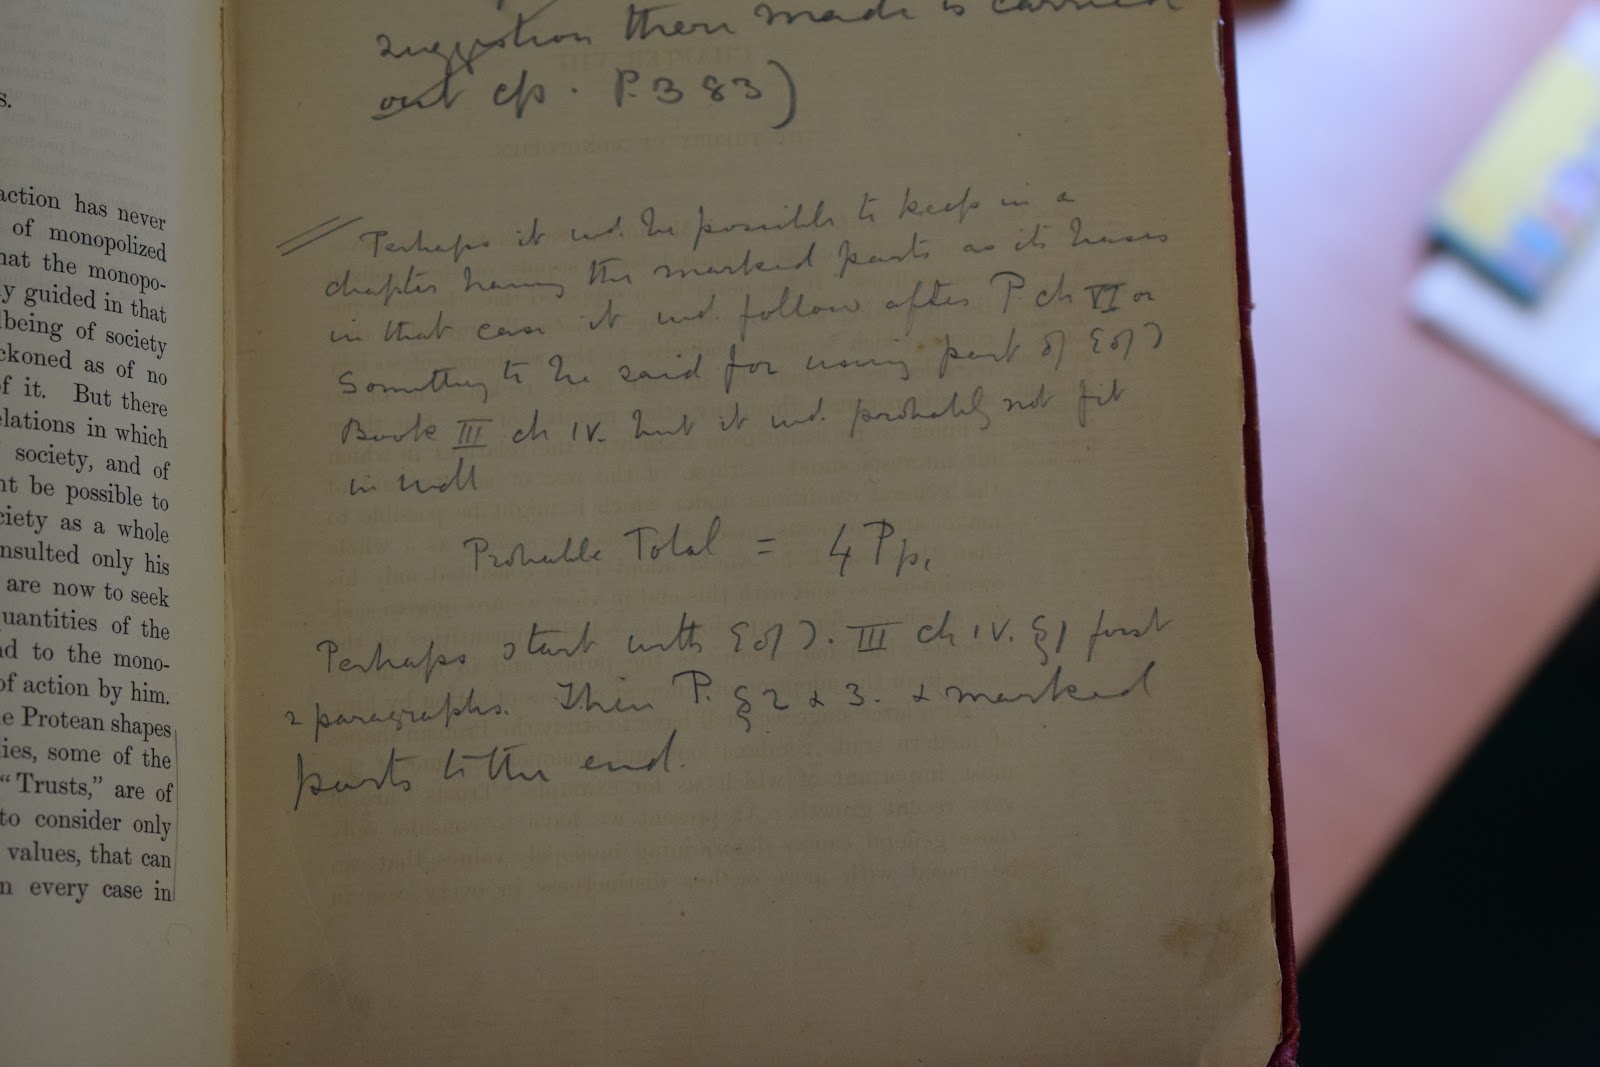 s.
action has never
of monopolized
hat the monopo-
y guided in that
lbeing of society
ckoned as of no
f it. But there
elations in which
society, and of
ht be possible to
ciety as a whole
nsulted only his
are now to seek
quantities of the
nd to the mono-
of action by him.
e Protean shapes
ies, some of the
"Trusts," are of
to consider only
values, that can
n every case in
suggestion then made is carried
out cp. P. 383)
Perhaps it wd. be possible to keep in a
chapter having the marked parts as its
in that case it wd. follow after P ch VI or
Something to be said for using part of E of I
Book III ch IV. but it wd. probably not fit
in well
Probable Total = 4 Pp.
Perhaps start with E of I. III ch IV. §1 first
2 paragraphs. Then P. § 2 & 3. & marked
parts to the end.